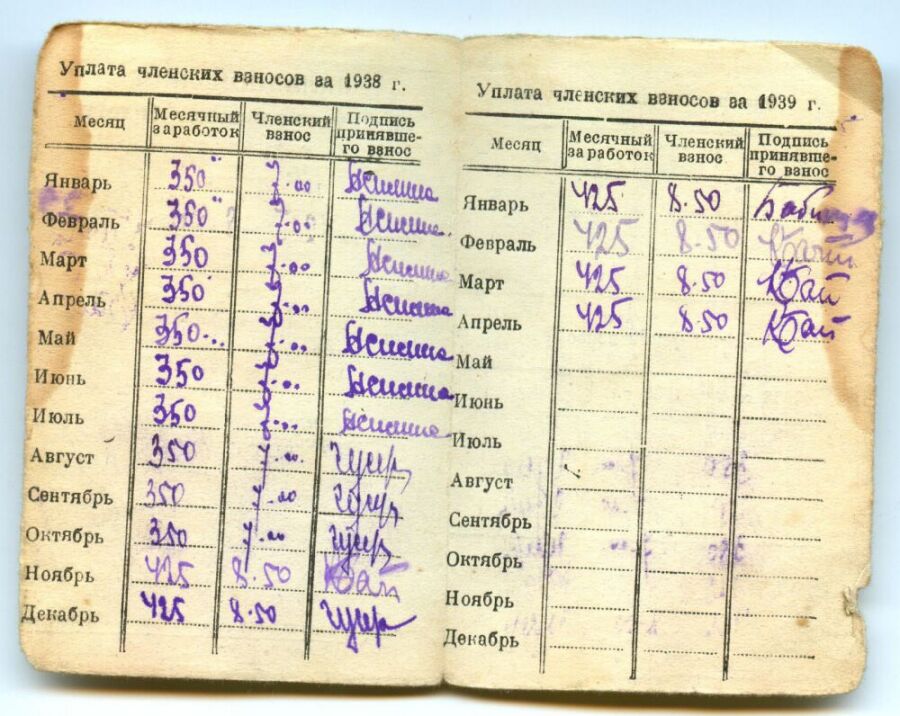 Уплата членских взносов за 1938 г.
Месяц Месячный заработок Членский взнос Подпись принявшего взнос
Январь 350 7.00
Февраль 350 7.00
Март 350 7.00
Апрель 350 7.00
Май 350 7.00
Июнь 350 7.00
Июль 350 7.00
Август 350 7.00
Сентябрь 350 7.00
Октябрь 350 7.00
Ноябрь 425 8.50
Декабрь 425 8.50
Уплата членских взносов за 1939 г.
Месяц Месячный заработок Членский взнос Подпись принявшего взнос
Январь 425 8.50
Февраль 425 8.50
Март 425 8.50
Апрель 425 8.50
Май
Июнь
Июль
Август
Сентябрь
Октябрь
Ноябрь
Декабрь